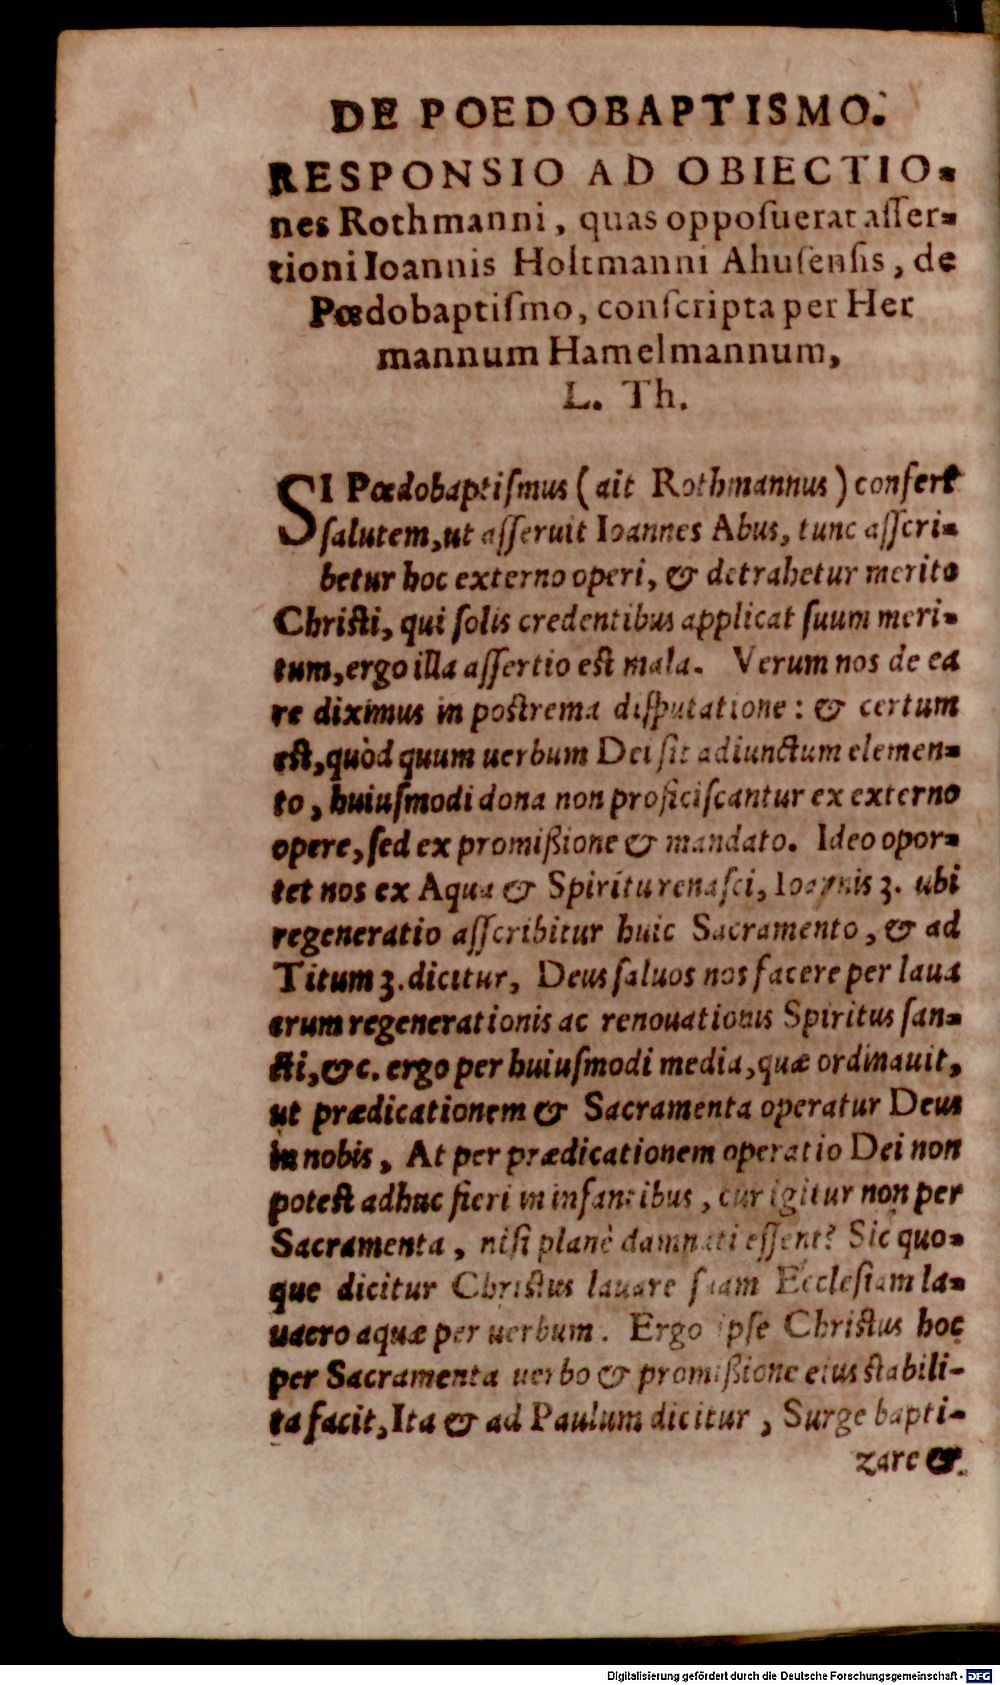 DE POEDOBAPTISMO.
RESPONSIO AD OBIECTIO-
nes Rothmanni, quas opposuerat asser-
tioni Ioannis Holtmanni Ahusensis, de
Pœdobaptismo, conscripta per Her
mannum Hamelmannum,
L. Th.
SI Pœdobaptismus (ait Rothmannus) confert
salutem, ut asseruit Ioannes Abus, tunc asscri-
betur hoc externo operi, & detrahetur merito
Christi, qui solis credentibus applicat suum meri-
tum, ergo illa assertio est mala. Verum nos de ea
re diximus in postrema disputatione: & certum
est, quòd quum uerbum Dei sit adiunctum elemen-
to, huiusmodi dona non proficiscantur ex externo
opere, sed ex promißione & mandato. Ideo opor-
tet nos ex Aqua & Spiritu renasci, Ioannis 3. ubi
regeneratio asscribitur huic Sacramento, & ad
Titum 3. dicitur, Deus saluos nos facere per laua
crum regenerationis ac renouationis Spiritus san-
cti, &c. ergo per huiusmodi media, quæ ordinauit,
ut prædicationem & Sacramenta operatur Deus
in nobis, At per prædicationem operatio Dei non
potest adhuc fieri in infantibus, cur igitur non per
Sacramenta, nisi planè damnati essent? Sic quo-
que dicitur Christus lauare suam Ecclesiam la-
uacro aquæ per uerbum. Ergo ipse Christus hoc
per Sacramenta uerbo & promißione eius stabili-
ta facit, Ita & ad Paulum dicitur, Surge bapti-
zare &
Digitalisierung gefördert durch die Deutsche Forschungsgemeinschaft - DFG